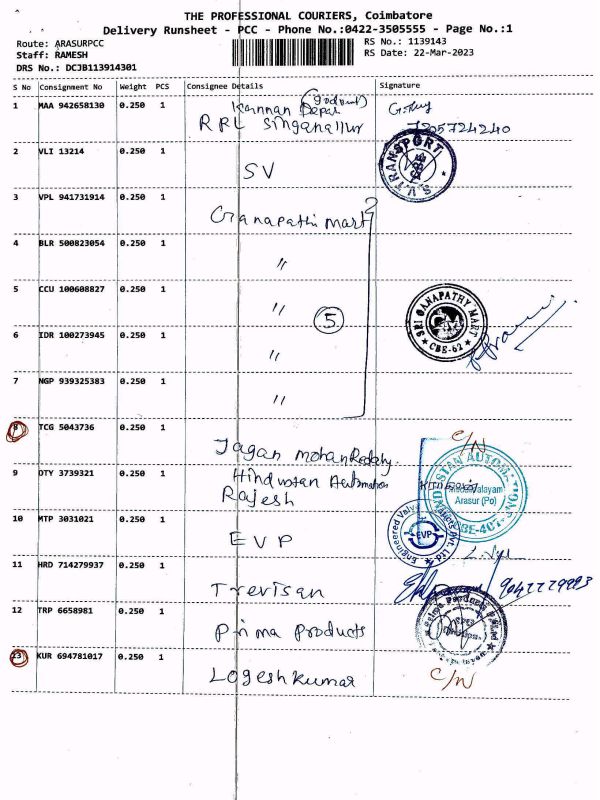 THE PROFESSIONAL COURIERS, Coimbatore
Delivery Runsheet - PCC - Phone No.:0422-3505555 - Page No.:1
Route: ARASURPCC
RS No.: 1139143
Staff: RAMESH
RS Date: 22-Mar-2023
DRS No.: DCJB113914301
S No Consignment No Weight PCS Consignee Details Signature
1 MAA 942658130 0.250 1 Kannan Depar
RRL Singanallur 7205724240
2 VLI 13214 0.250 1
SV
S.V. TRANSPORT
3 VPL 941731914 0.250 1
Ganapathi mart
4 BLR 500823054 0.250 1
〃
5 CCU 100608827 0.250 1
〃 5
SRI GANAPATHY MART
GM
CBE-62
6 IDR 100273945 0.250 1
〃
7 NGP 939325383 0.250 1
〃
8 TCG 5043736 0.250 1 C/N
Jagan mohan Reddy
9 DTY 3739321 0.250 1 Hindustan Automation
Rajesh
HINDUSTAN AUTOMATIONS
Arasur (Po)
CBE-407
10 MTP 3031021 0.250 1
EVP
Engineered Valve Pvt. Ltd
EVP
11 HRD 714279937 0.250 1
Trevisan 9042229993
12 TRP 6658981 0.250 1
Prima Products
13 KUR 694781017 0.250 1
Logesh kumar C/N